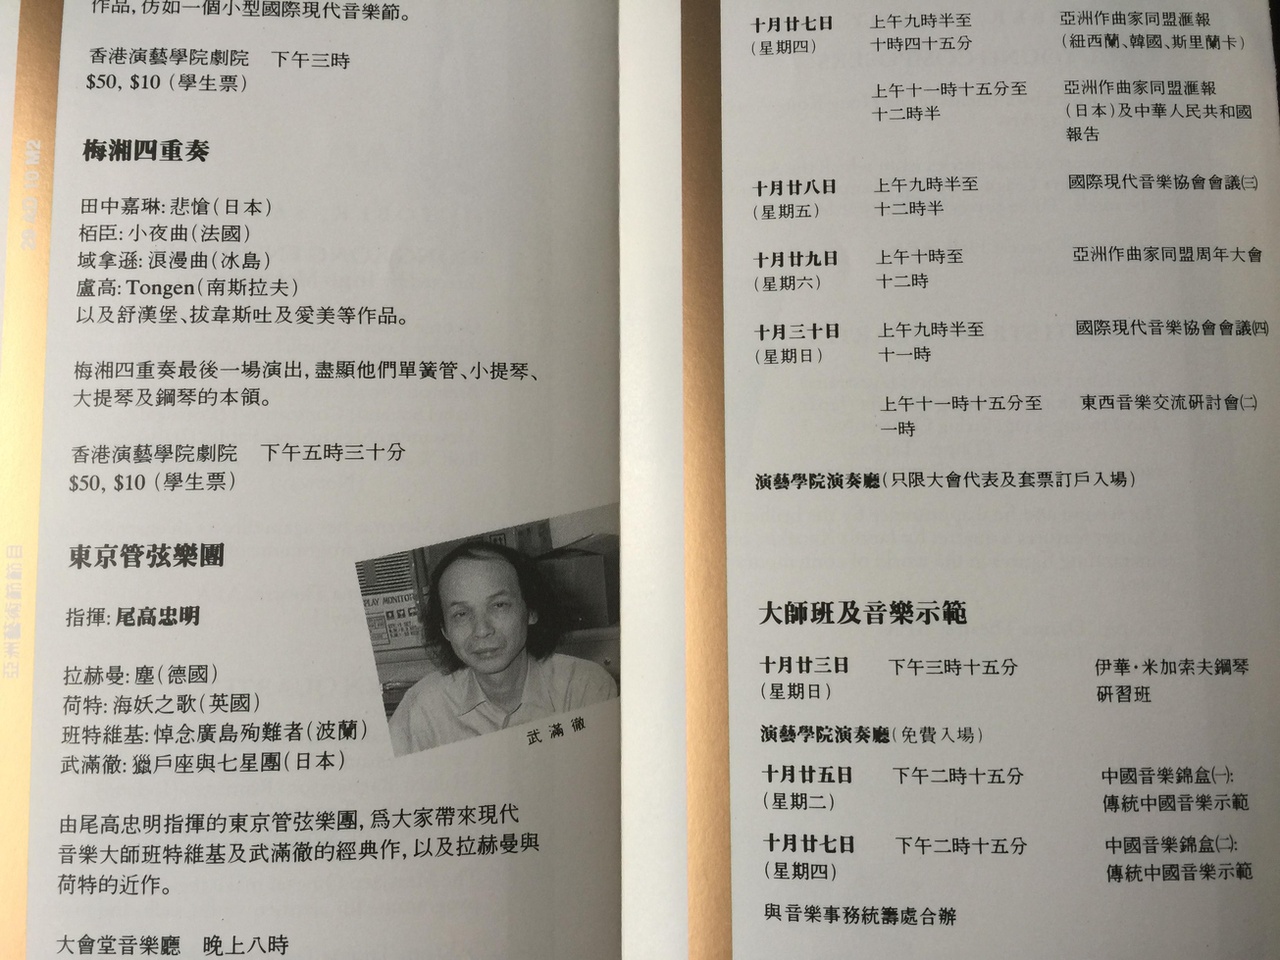 作品,仿如一個小型國際現代音樂節。
香港演藝學院劇院 下午三時
$50, $10 (學生票)
梅湘四重奏
田中嘉琳:悲愴(日本)
栢臣:小夜曲(法國)
域拿遜:浪漫曲(冰島)
盧高:Tongen(南斯拉夫)
以及舒漢堡、拔韋斯吐及愛美等作品。
梅湘四重奏最後一場演出,盡顯他們單簧管、小提琴、
大提琴及鋼琴的本領。
香港演藝學院劇院 下午五時三十分
$50, $10 (學生票)
東京管弦樂團
指揮:尾高忠明
拉赫曼:塵(德國)
荷特:海妖之歌(英國)
班特維基:悼念廣島殉難者(波蘭)
武滿徹:獵戶座與七星團(日本)
武滿徹
由尾高忠明指揮的東京管弦樂團,爲大家帶來現代
音樂大師班特維基及武滿徹的經典作,以及拉赫曼與
荷特的近作。
大會堂音樂廳 晚上八時
亞洲藝術節節目
十月廿七日 上午九時半至 亞洲作曲家同盟滙報
(星期四) 十時四十五分 (紐西蘭、韓國、斯里蘭卡)
上午十一時十五分至 亞洲作曲家同盟滙報
十二時半 (日本)及中華人民共和國
報告
十月廿八日 上午九時半至 國際現代音樂協會會議㈢
(星期五) 十二時半
十月廿九日 上午十時至 亞洲作曲家同盟周年大會
(星期六) 十二時
十月三十日 上午九時半至 國際現代音樂協會會議㈣
(星期日) 十一時
上午十一時十五分至 東西音樂交流研討會㈡
一時
演藝學院演奏廳(只限大會代表及套票訂戶入場)
大師班及音樂示範
十月廿三日 下午三時十五分 伊華·米加索夫鋼琴
(星期日) 研習班
演藝學院演奏廳(免費入場)
十月廿五日 下午二時十五分 中國音樂錦盒㈠:
(星期二) 傳統中國音樂示範
十月廿七日 下午二時十五分 中國音樂錦盒㈡:
(星期四) 傳統中國音樂示範
與音樂事務統籌處合辦